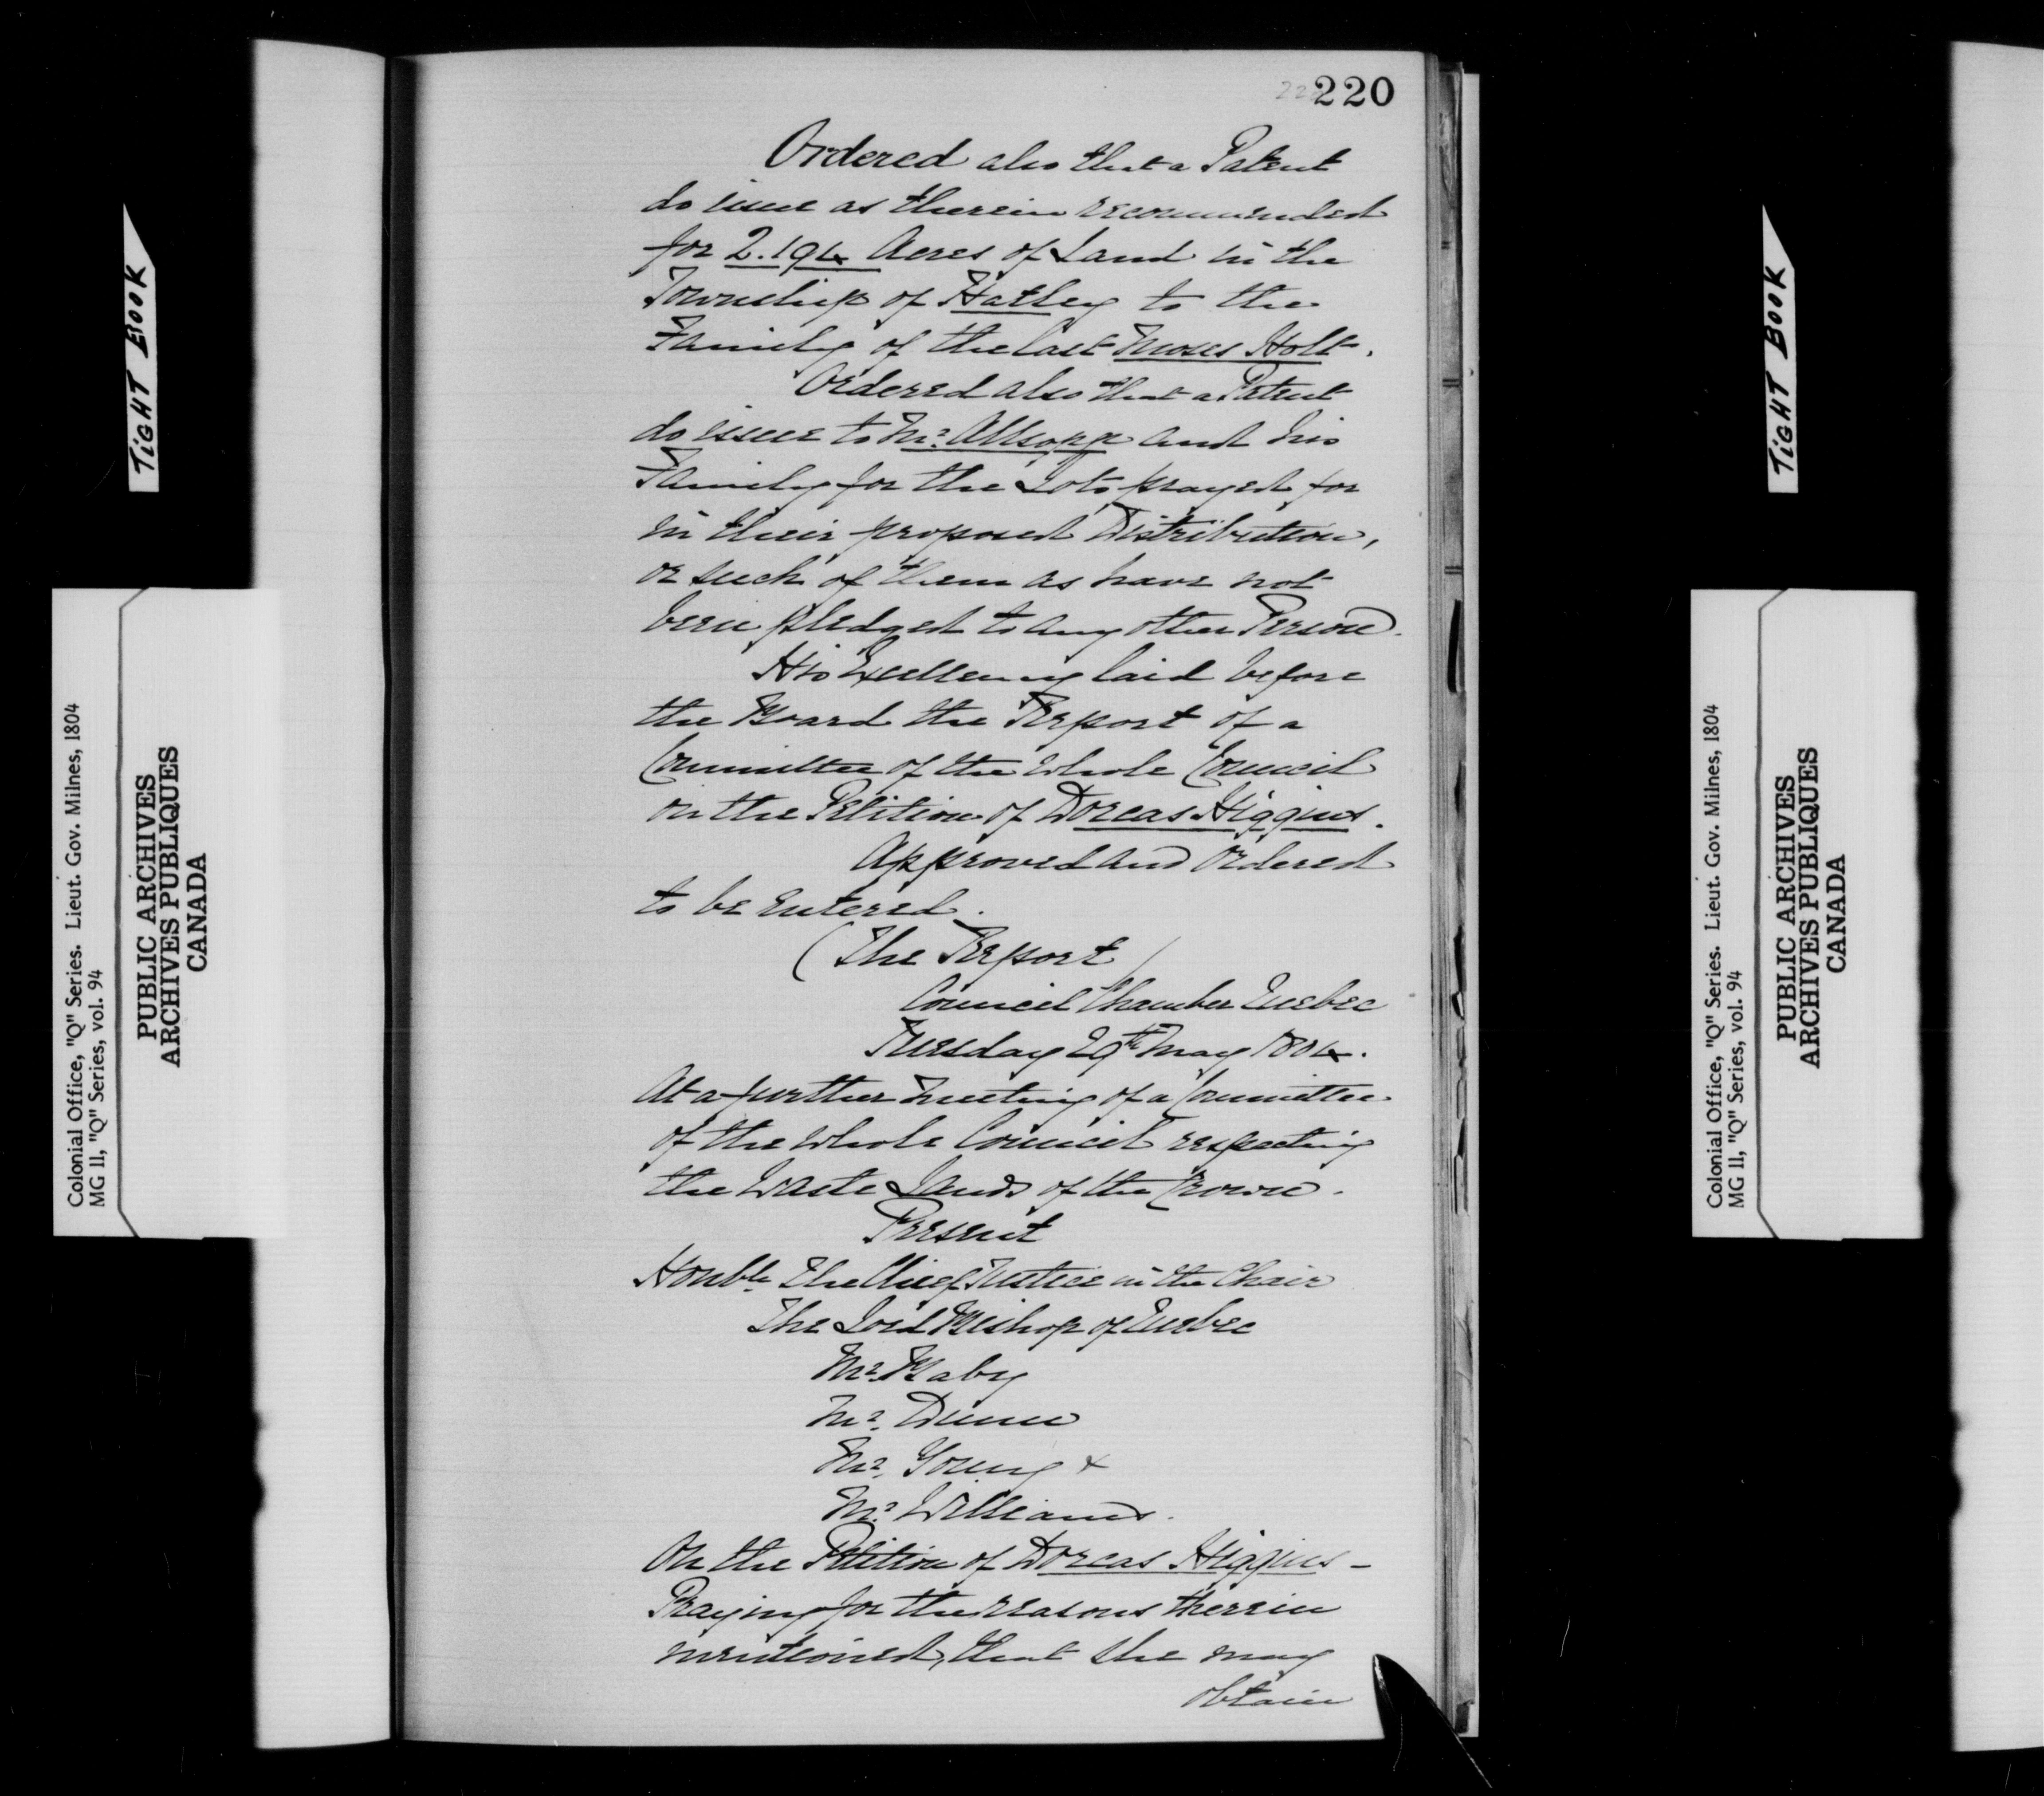 220
Ordered also that a Patent
do issue as therein recommended
for 2.194 Acres of Land in the
Township of Hatley to the
Family of the last Moses Holt.
Ordered also that a Patent
do issue to Mr. Allsopp and his
Family for the Lots prayed for
in their proposed Distribution,
or such of them as have not
been pledged to any other Person.
His Excellency laid before
the Board the Report of a
Committee of the Whole Council
on the Petition of Dorcas Higgins.
Approved and Ordered
to be Entered.
(The Report)
Council Chamber Quebec
Tuesday 29th May 1804.
At a further Meeting of a Committee
of the Whole Council respecting
the Waste Lands of the Crown.
Present
Honble. The Chief Justice in the Chair
The Lord Bishop of Quebec
Mr. Baby
Mr. Dunn
Mr. Young &
Mr. Williams.
On the Petition of Dorcas Higgins -
Praying for the reasons therein
mentioned, that she may
obtain
TIGHT BOOK
Colonial Office, "Q" Series. Lieut. Gov. Milnes, 1804
MG 11, "Q" Series, vol. 94
PUBLIC ARCHIVES
ARCHIVES PUBLIQUES
CANADA
TIGHT BOOK
Colonial Office, "Q" Series. Lieut. Gov. Milnes, 1804
MG 11, "Q" Series, vol. 94
PUBLIC ARCHIVES
ARCHIVES PUBLIQUES
CANADA